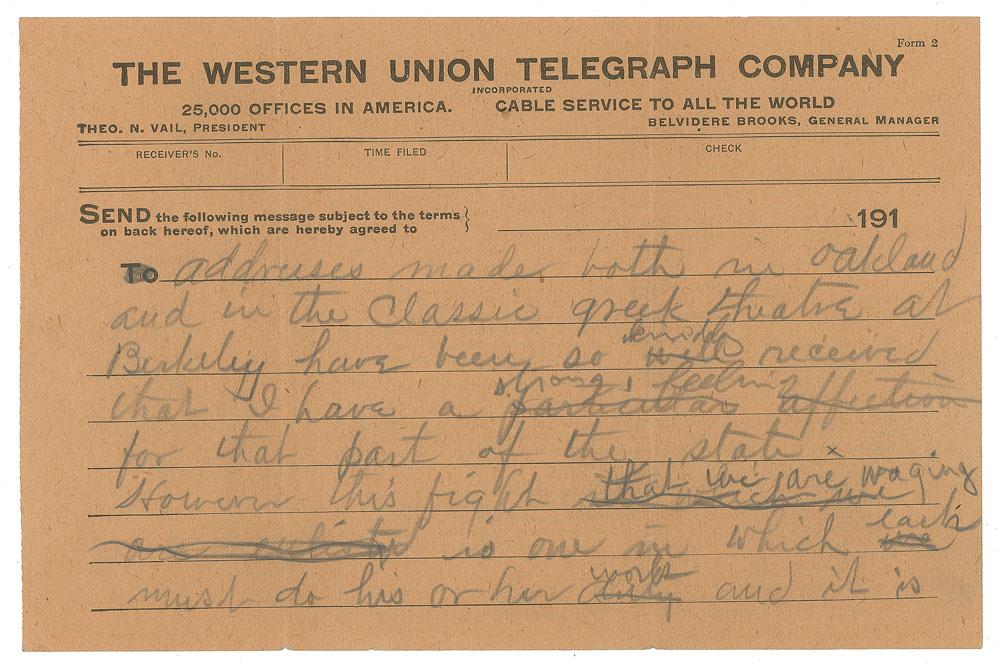 Form 2
THE WESTERN UNION TELEGRAPH COMPANY
INCORPORATED
25,000 OFFICES IN AMERICA. CABLE SERVICE TO ALL THE WORLD
THEO. N. VAIL, PRESIDENT BELVIDERE BROOKS, GENERAL MANAGER
RECEIVER'S No. TIME FILED CHECK
SEND the following message subject to the terms
on back hereof, which are hereby agreed to
191
To addresses made both in Oakland
and in the Classic greek theatre at
kindly
Berkeley have been so well received
strong feeling
that I have a particular affection
for that part of the state x
However this fight that we are waging
is one in which we each
work
must do his or her duty and it is